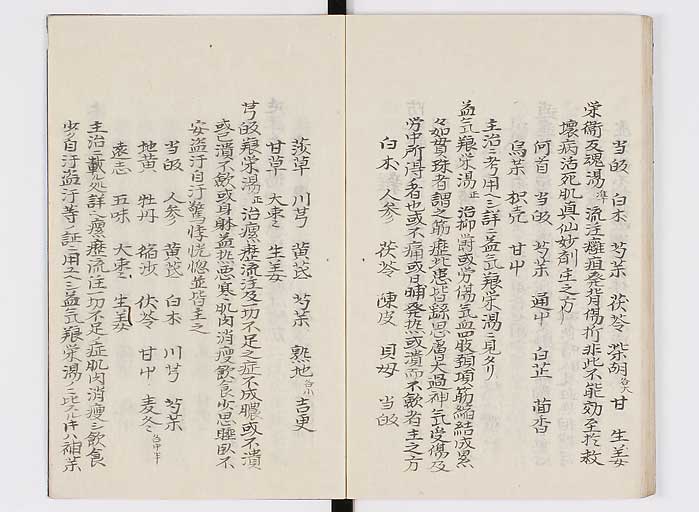 当皈 白朮 芍薬 茯苓 柴胡各大 甘 生姜
栄衛反魂湯準 流注癰疽発背傷折非此不能効至於救
壊病活死肌真仙妙剤主之方
何首 当皈 芍薬 通中 白芷 茴香
烏薬 枳壳 甘中
主治ニ考用ニ詳ニ益気養栄湯ニ見タリ
益気養栄湯正 治抑鬱或労傷気血四肢頚項筋縮結成累
々如貫珠者謂之筋癧此患皆繇思慮太過神気受傷及
労中所得者也或不痛或日晡発熱或潰而不斂者主之方
白朮 人参 茯苓 陳皮 貝母 当皈
莎草 川芎 黄芪 芍薬 熟地各小 吉更
甘草 大棗 生姜
芎皈養栄湯正 治瘰癧流注及一切不足之症不成膿或不潰
或已潰不斂或身躰益熱悪寒肌肉消瘦飲食少思睡臥不
安盗汗自汗驚悸恍惚並皆主之
当皈 人参 黄芪 白朮 川芎 芍薬
地黄 牡丹 縮砂 茯苓 甘中 麦冬各中半
遠志 五味 大棗 生姜
主治ニ載ル処詳ニ瘰癧流注一切不足ノ症肌肉消瘦シ飲食
少ク自汗盗汗等ノ証ニ用ユ益気養栄湯ニ比スルトキハ補薬